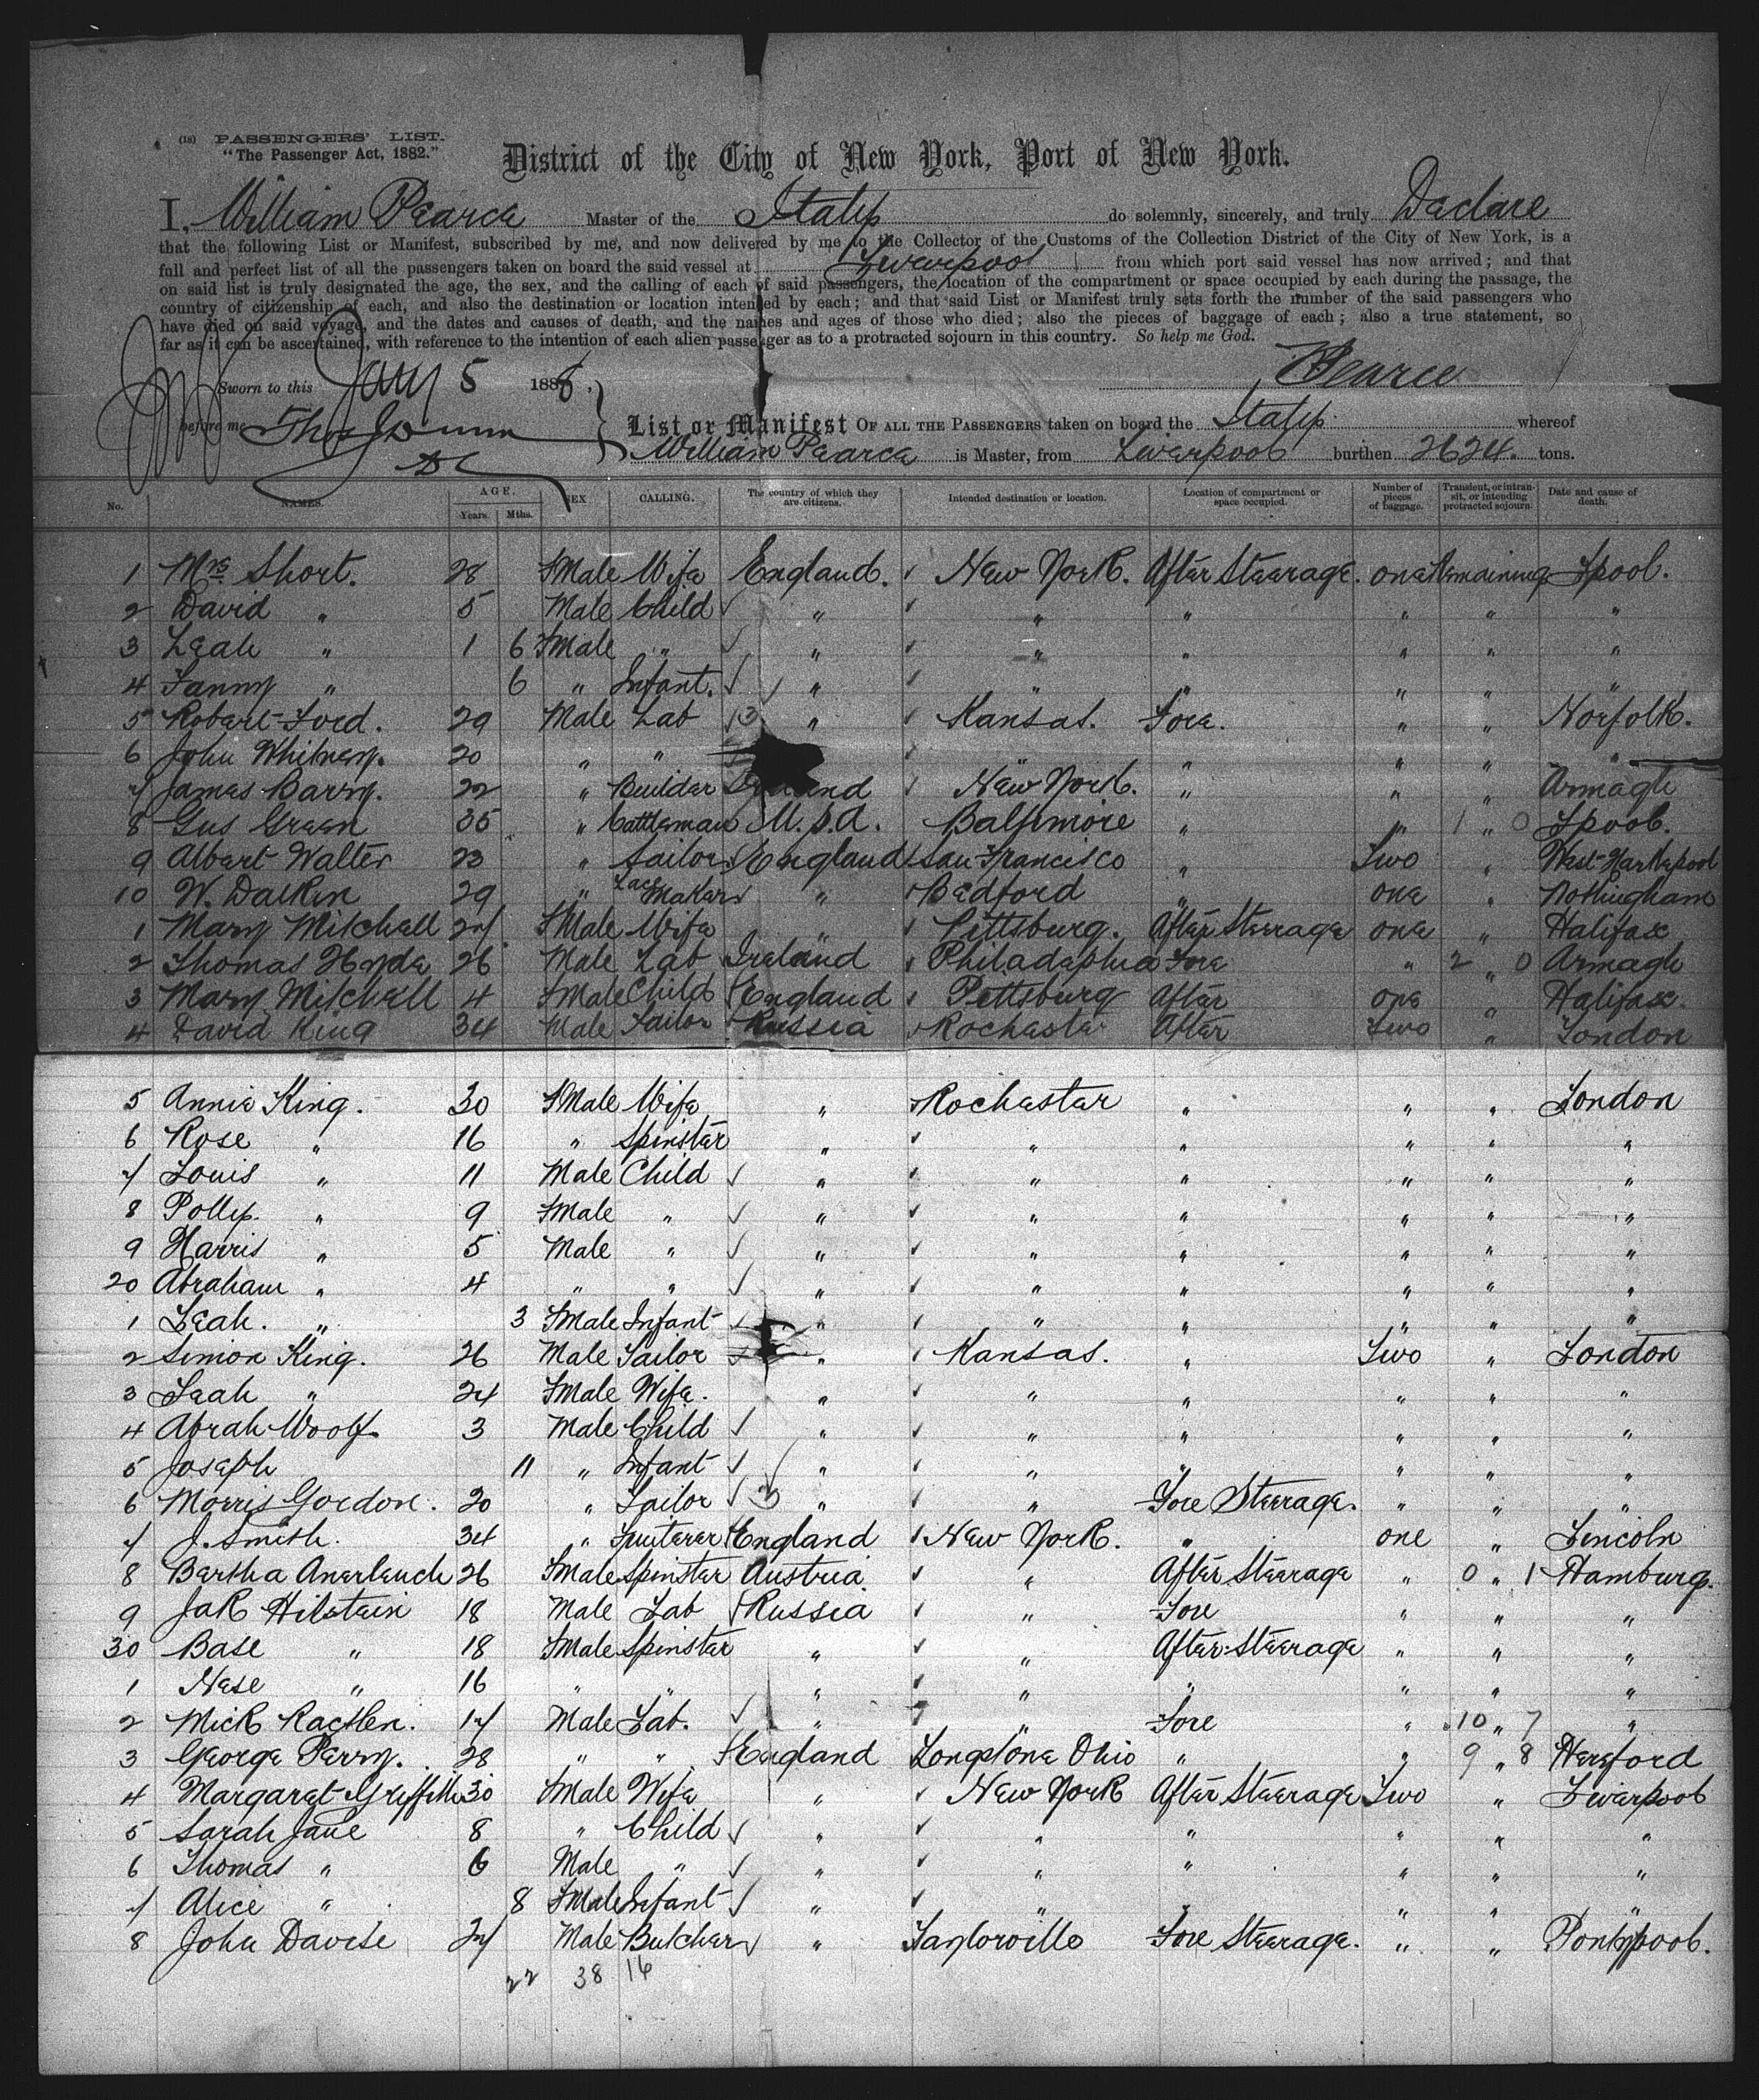 (18) PASSENGERS' LIST.
"The Passenger Act, 1882."
District of the City of New York, Port of New York.
I, William Pearce Master of the Italy do solemnly, sincerely, and truly Declare
that the following List or Manifest, subscribed by me, and now delivered by me to the Collector of the Customs of the Collection District of the City of New York, is a
full and perfect list of all the passengers taken on board the said vessel at Liverpool from which port said vessel has now arrived; and that
on said list is truly designated the age, the sex, and the calling of each of said passengers, the location of the compartment or space occupied by each during the passage, the
country of citizenship of each, and also the destination or location intended by each; and that said List or Manifest truly sets forth the number of the said passengers who
have died on said voyage, and the dates and causes of death, and the names and ages of those who died; also the pieces of baggage of each; also a true statement, so
far as it can be ascertained, with reference to the intention of each alien passenger as to a protracted sojourn in this country. So help me God.
Sworn to this Jany 5 1888. Pearce
before me Thos Dunn
List or Manifest OF ALL THE PASSENGERS taken on board the Italy whereof
William Pearce is Master, from Liverpool burthen 2624. tons.
No. NAMES. AGE. Years. Mths. SEX CALLING. The country of which they are citizens. Intended destination or location. Location of compartment or space occupied. Number of pieces of baggage. Transient, or in transit, or intending protracted sojourn. Date and cause of death.
1 Mrs Short. 28 FMale Wife England. New York. After Steerage. one Remaining Lpool.
2 David " 5 Male Child " " " " " "
3 Leah " 1 6 FMale " " " " " " "
4 Fanny " 6 " Infant. " " " " " "
5 Robert Ford. 29 Male Lab " Kansas. Fore. " " Norfolk.
6 John Whitney. 20 " " " " " " "
7 James Barry. 22 " Builder Ireland New York. " " " Armagh
8 Gus Green 35 " Cattleman U.S.A. Baltimore " " 1 " 0 Lpool.
9 Albert Walter 23 " Sailor England San Francisco " Two " West Hartlepool
10 W. Dalkin 29 " Lace Maker " Bedford " one " Nottingham
1 Mary Mitchell 27 FMale Wife " Pittsburg. After Steerage one " Halifax
2 Thomas Hyde 26 Male Lab Ireland Philadephia Fore " 2 " 0 Armagh
3 Mary Mitchell 4 FMale Child England Pittsburg After one " Halifax.
4 David King 34 Male Tailor Russia Rochester After Two " London
5 Annie King. 30 FMale Wife " Rochester " " " London
6 Rose " 16 " Spinster " " " " " "
7 Louis " 11 Male Child " " " " " "
8 Polly. " 9 FMale " " " " " " "
9 Harris " 5 Male " " " " " " "
20 Abraham " 4 " " " " " " " "
1 Leah. " 3 FMale Infant " " " " " "
2 Simon King. 26 Male Tailor " Kansas. " Two " London
3 Leah " 24 FMale Wife. " " " " " "
4 Abrah Woolf. 3 Male Child " " " " " "
5 Joseph 11 " Infant " " " " " "
6 Morris Gordon. 20 " Tailor " " Fore Steerage. " " "
7 J. Smith. 34 " England New York. " one " Lincoln
8 Bertha 26 FMale Spinster Austria " After Steerage " 0 " 1 Hamburg.
9 Jak Hilstein 18 Male Lab Russia " Fore " " "
30 Base " 18 FMale Spinster " " After Steerage " " "
1 Nese " 16 " " " " " " " "
2 Mick 17 Male Lab. " " Fore " 10 " 7 "
3 George Perry. 28 " " England Ohio " " 9 " 8 Hereford
4 Margaret Griffiths 30 FMale Wife " New York After Steerage Two " Liverpool
5 Sarah Jane 8 " Child " " " " " "
6 Thomas " 6 Male " " " " " " "
7 Alice " 8 FMale Infant " " " " " "
8 John Davise 27 Male Butcher " Taylorville Fore Steerage. " " Pontypool.
22 38 16